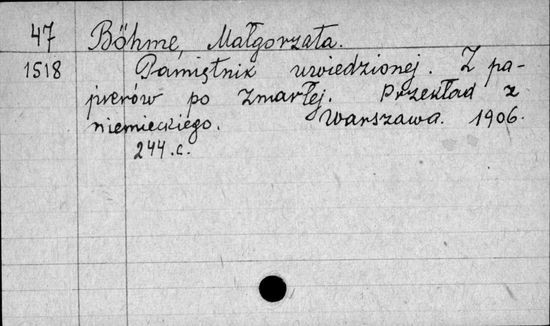 47 Böhme, Małgorzata.
1518 Pamiętnik uwiedzionej. Z pa-
pierów po zmarłej. Przekład z
niemieckiego. Warszawa. 1906.
244.c.